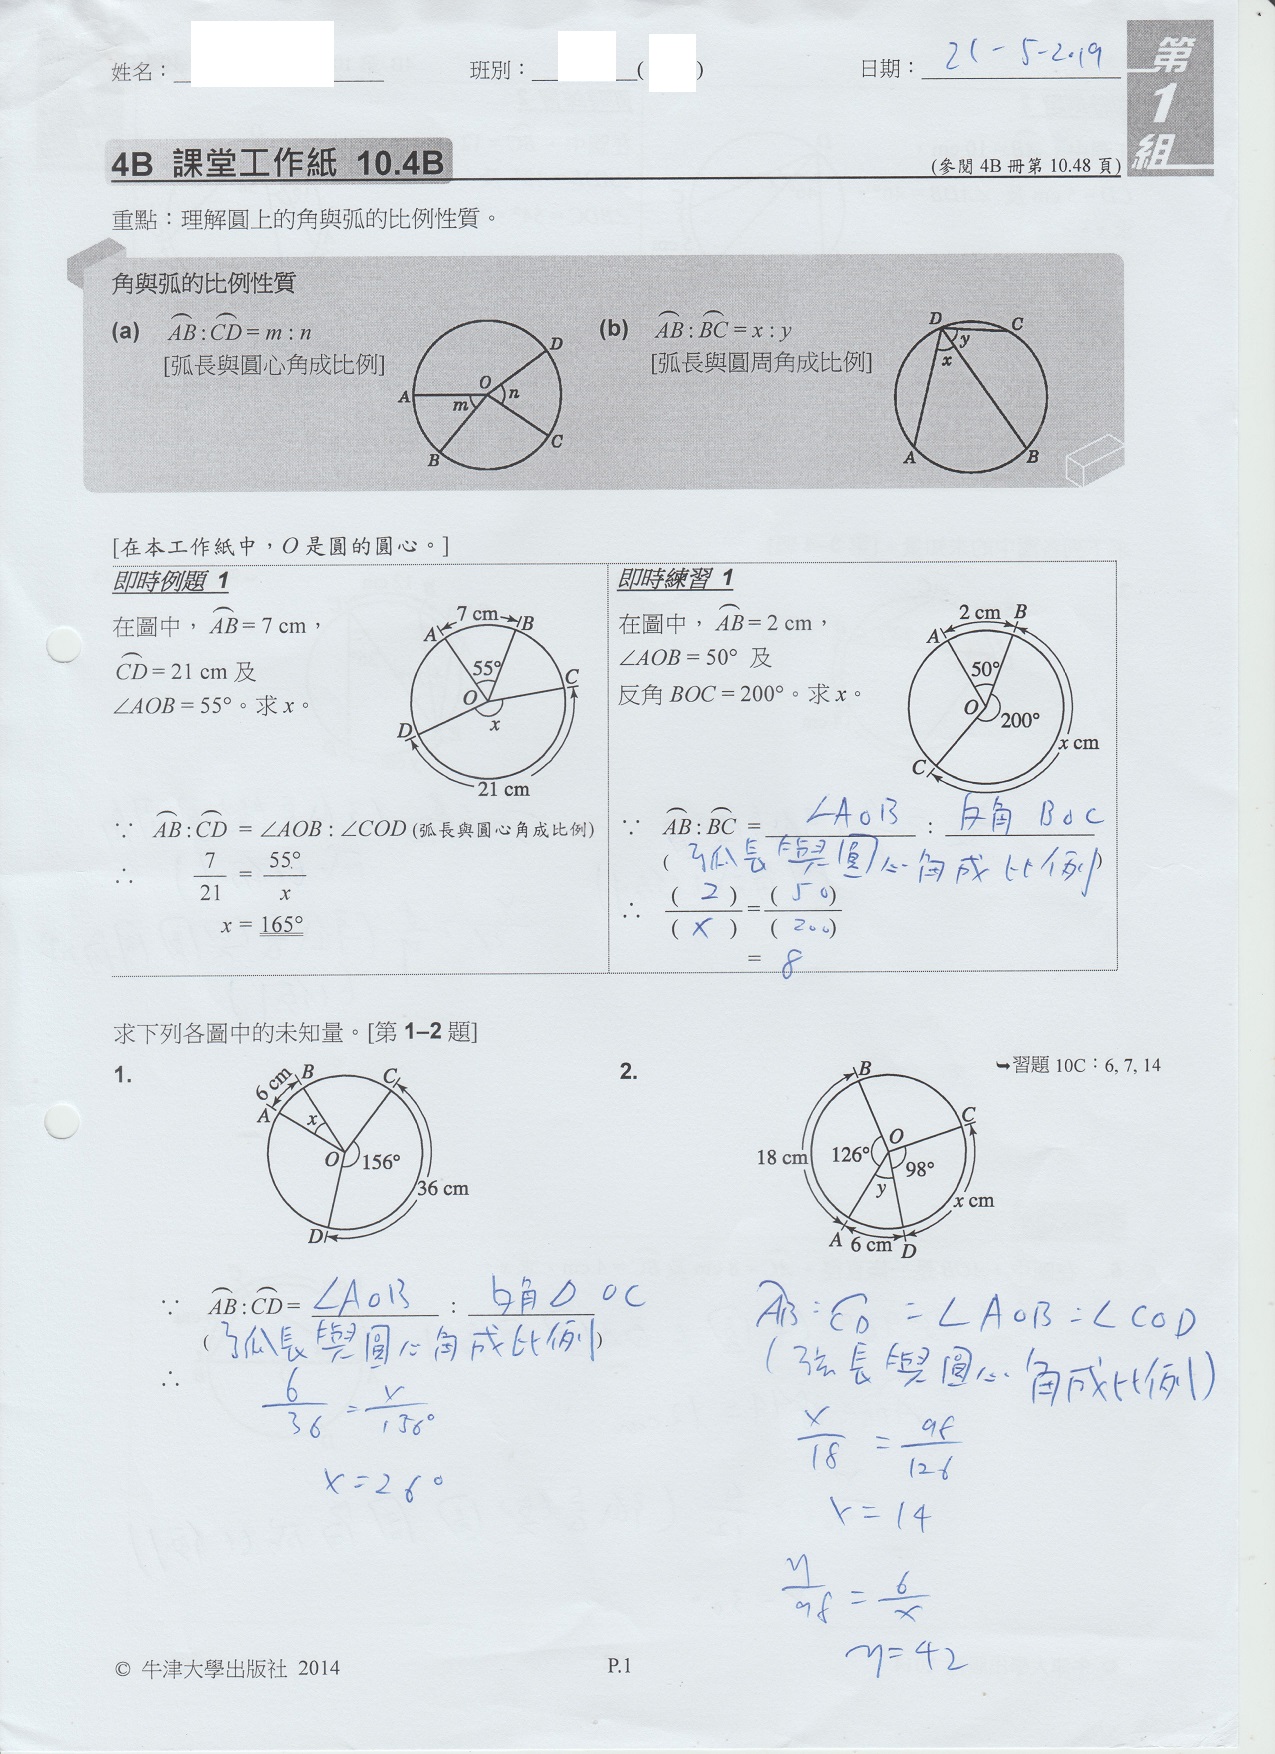 姓名：
班別： ( )
日期： 21-5-2019
第1組
4B 課堂工作紙 10.4B
(參閱 4B 冊第 10.48 頁)
重點：理解圓上的角與弧的比例性質。
角與弧的比例性質
(a) AB : CD = m : n
[弧長與圓心角成比例]
A B C D O m n
(b) AB : BC = x : y
[弧長與圓周角成比例]
D C y x A B
[在本工作紙中，O 是圓的圓心。]
即時例題 1
在圖中，AB = 7 cm，
CD = 21 cm 及
∠AOB = 55°。求 x。
7 cm A B 55° C O x D 21 cm
∵ AB : CD = ∠AOB : ∠COD (弧長與圓心角成比例)
∴ 7/21 = 55°/x
x = 165°
即時練習 1
在圖中，AB = 2 cm，
∠AOB = 50° 及
反角 BOC = 200°。求 x。
2 cm A B 50° O 200° x cm C
∵ AB : BC = ∠AOB : 反角 BOC
( 弧長與圓心角成比例 )
∴ ( 2 )/( x ) = ( 50 )/( 200 )
= 8
求下列各圖中的未知量。[第 1–2 題]
1.
6 cm A B C x O 156° 36 cm D
∵ AB : CD = ∠AOB : 反角 DOC
( 弧長與圓心角成比例 )
∴
6/36 = x/156°
x = 26°
2.
➥習題 10C：6, 7, 14
B C O 18 cm 126° 98° y x cm A 6 cm D
AB : CD = ∠AOB : ∠COD
(弦長與圓心角成比例)
x/18 = 98/126
x = 14
y/98 = 6/x
y = 42
© 牛津大學出版社 2014
P.1